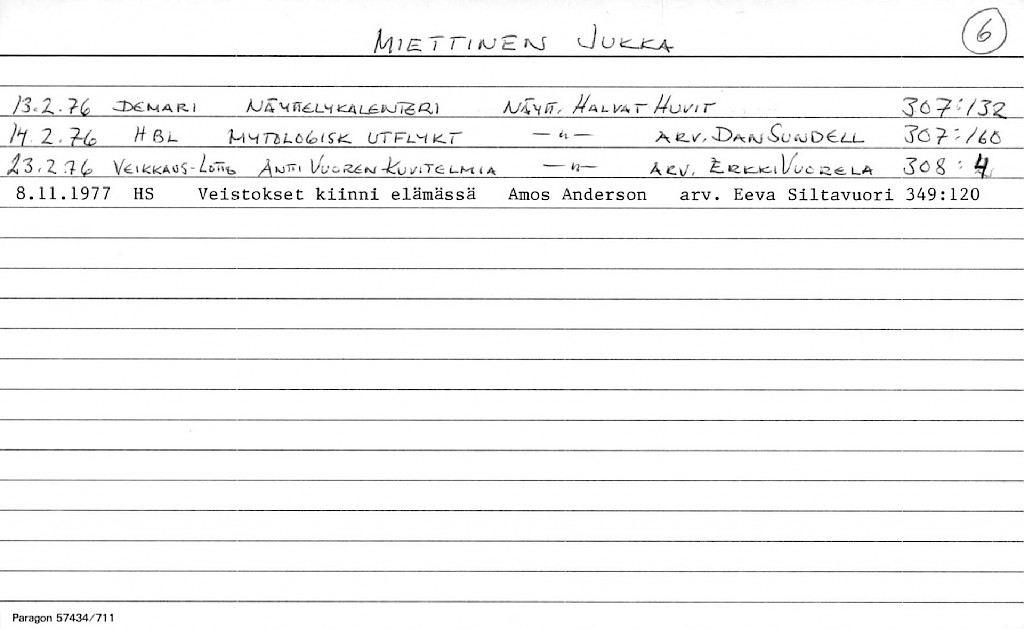 MIETTINEN JUKKA 6
13.2.76 DEMARI NÄYTTELYKALENTERI NÄYTT. HALVAT HUVIT 307:132
14.2.76 HBL MYTOLOGISK UTFLYKT —"— ARV. DAN SUNDELL 307:160
23.2.76 VEIKKAUS-LOTTO ANTI VUOREN KUVITELMIA —"— ARV. ERKKI VUORELA 308:4
8.11.1977 HS Veistokset kiinni elämässä Amos Anderson arv. Eeva Siltavuori 349:120
Paragon 57434/711